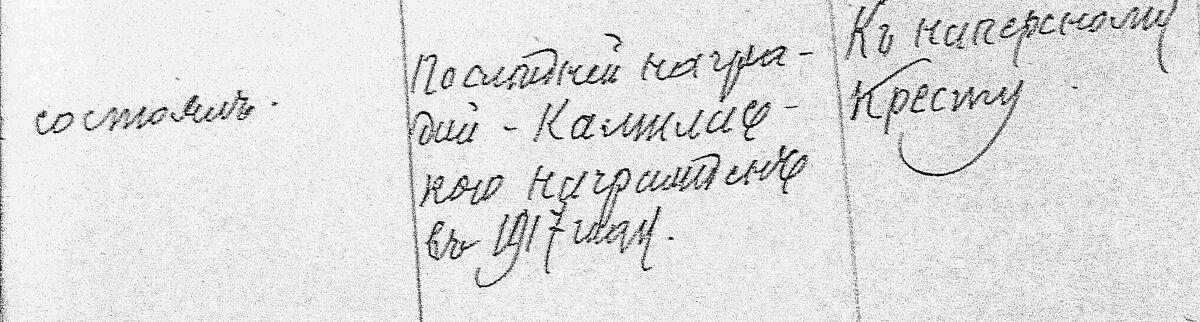 состоялъ.
Послѣдней награ-
дой - Камилав-
кою награжденъ
въ 1917 году.
Къ наперсному
Кресту